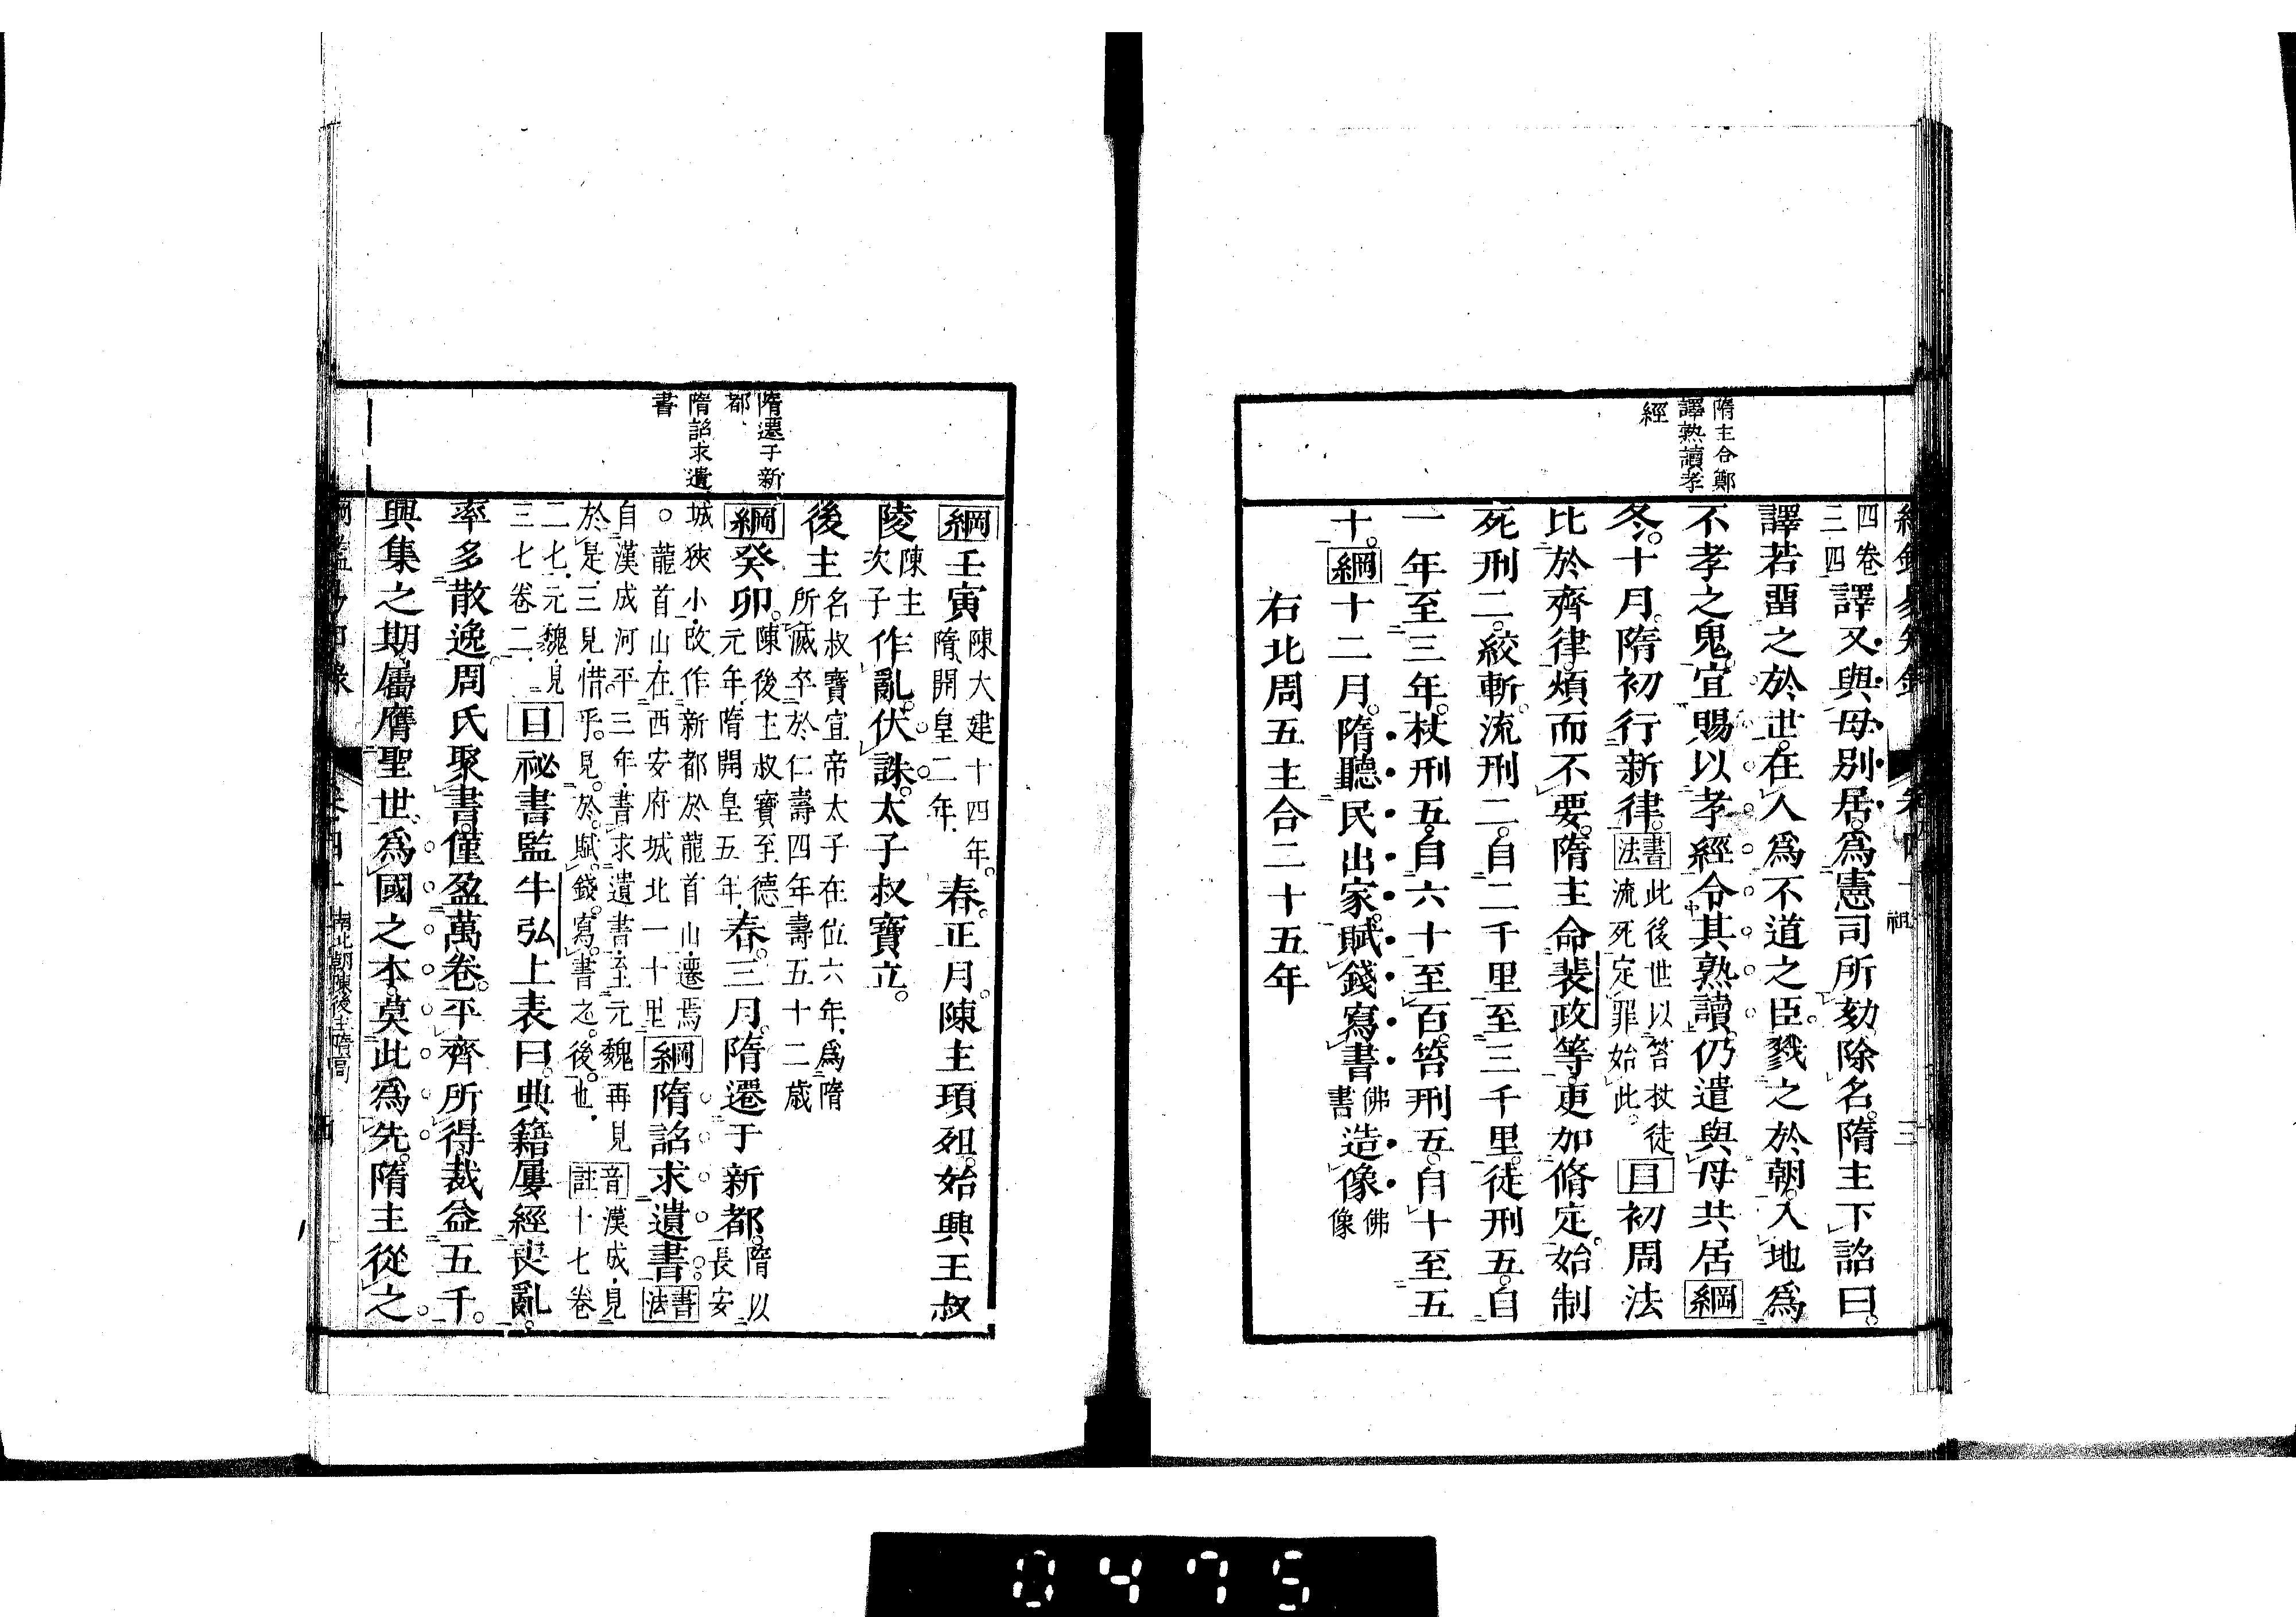 隋主令鄭
譯熟讀孝
經
四卷
三四
譯又與母別居爲憲司所劾除名隋主下詔曰
譯若畱之於世在人爲不道之臣戮之於朝入地爲
不孝之鬼宜賜以孝經令其熟讀仍遣與母共居綱
冬十月隋初行新律書法此後世以笞杖徒流死定罪始此目初周法
比於齊律煩而不要隋主命裴政等更加脩定始制
死刑二絞斬流刑二自二千里至三千里徒刑五自
一年至三年杖刑五自六十至百笞刑五自十至五
十綱十二月隋聽民出家賦錢寫書佛書造像佛像
右北周五主合二十五年
隋遷于新
都
隋詔求遺
書
綱壬寅陳大建十四年隋開皇二年春正月陳主頊殂始興王叔
陵陳主次子作亂伏誅太子叔寶立
後主名叔寶宣帝太子在位六年爲隋所滅卒於仁壽四年壽五十二歲
綱癸卯陳後主叔寶至德元年隋開皇五年春三月隋遷于新都隋以長安
城狹小改作新都於龍首山遷焉
○龍首山在西安府城北一十里
綱隋詔求遺書書法
自漢成河平三年書求遺書至元魏再見
於是三見惜乎見於賦錢寫書之後也
音註漢成見十七卷
二七元魏見
三七卷二
目祕書監牛弘上表曰典籍屢經喪亂
率多散逸周氏聚書僅盈萬卷平齊所得裁益五千
興集之期屬膺聖世爲國之本莫此爲先隋主從之
南北朝陳後主隋高
祖
0475